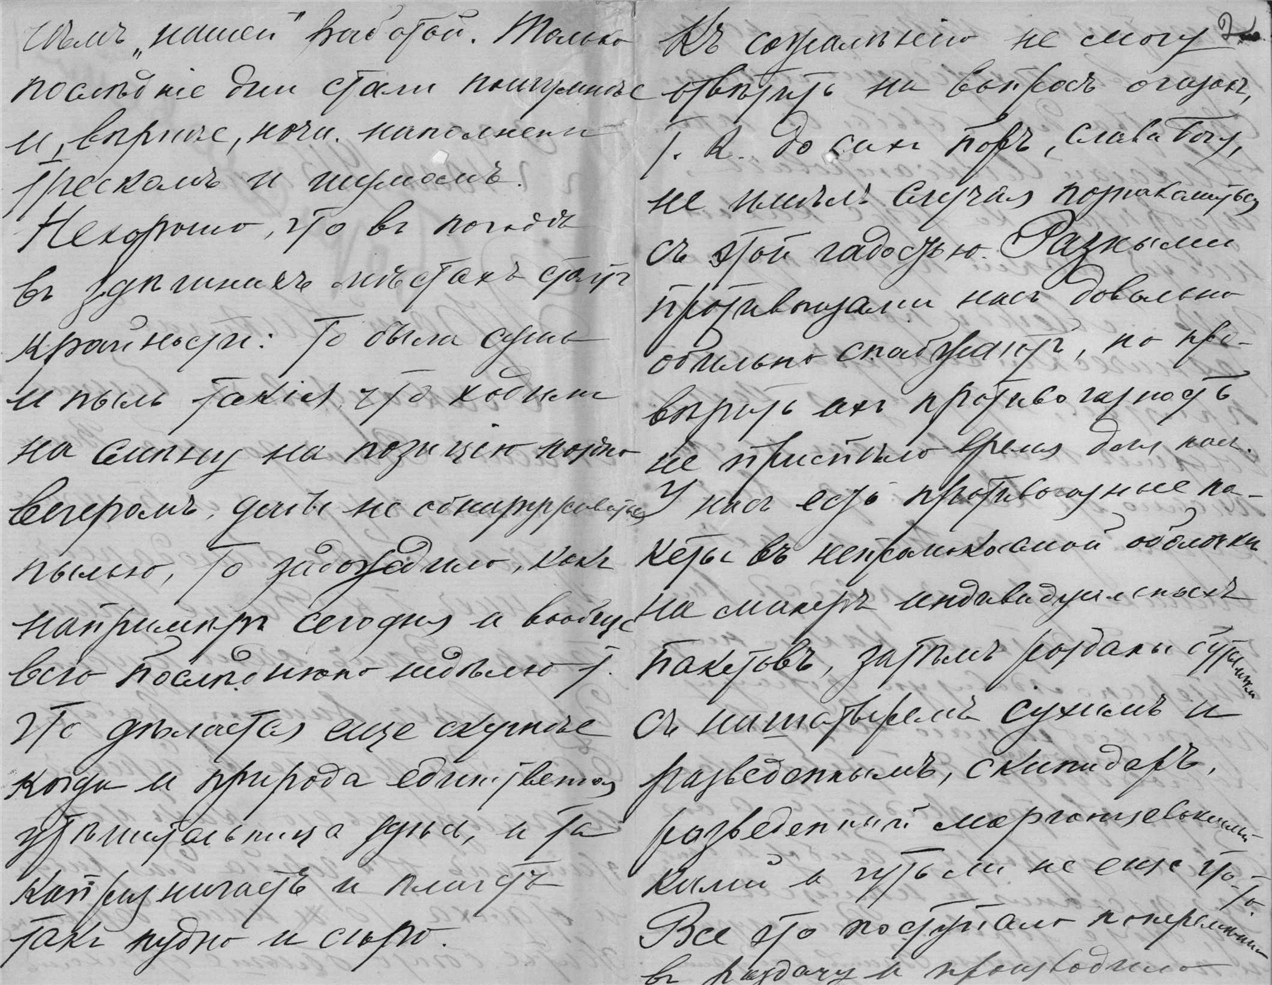 шемъ „нашей" работой. Только
последніе дни стали пошумливѣе
и, вѣрнѣе, ночи наполнены
трескомъ и шумомъ.
Нехорошо, что въ погодѣ
въ здѣшнихъ мѣстахъ стоятъ
крайности: то были сушь
и пыль такія что ходили
на смѣну на позицію поздно
вечеромъ, дабы не обнаруживаться
пылью, то задождило, какъ
напримѣръ сегодня и вообще
всю послѣднюю недѣлю т.
что дѣлается еще скучнѣе
когда и природа единственная
утѣшительница здѣсь, и та
капризничаетъ и плачетъ
такъ нудно и сыро.
2
Къ сожалѣнію не могу
отвѣтить на вопросъ о газахъ,
т. к. до сихъ поръ, слава Богу,
не имѣлъ случая познакомиться
съ этой гадостью. Разными
противогазами насъ довольно
обильно снабжаютъ, но про-
вѣрить ихъ противогазность
не приспѣло время для насъ.
У насъ есть противогазные па-
кеты въ непромокаемой оболочкѣ
на манеръ индивидуальныхъ
пакетовъ, затѣмъ розданы бутылки
съ нашатыремъ сухимъ и
разведеннымъ, скипидаръ,
разведенный марганцевокислый
калій и чуть ли не еще что-то.
Все это поступало поперемѣнно
въ раздачу и производило